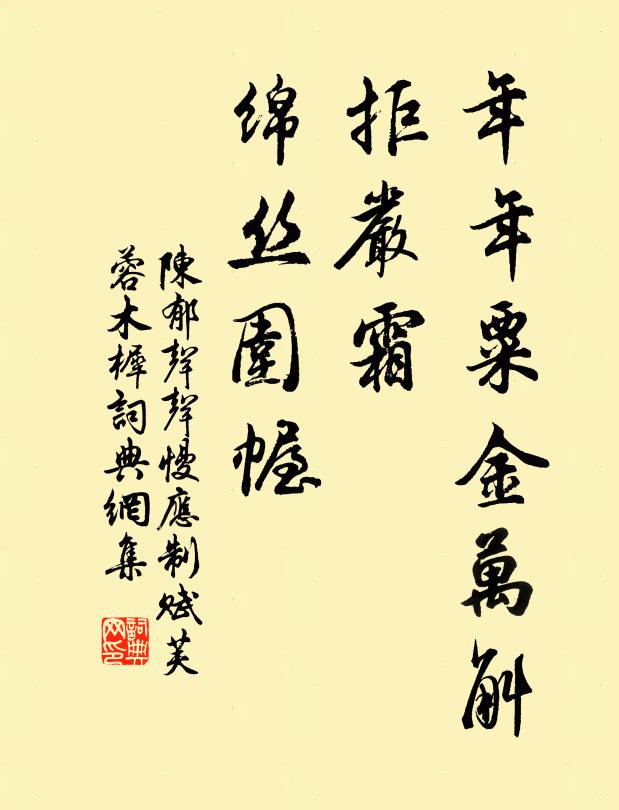 年年粟金萬斛
拒嚴霜
綿丝圍幄
陳郁聲聲慢應制賦芙
蓉木樨詞典網集
詞典
网印